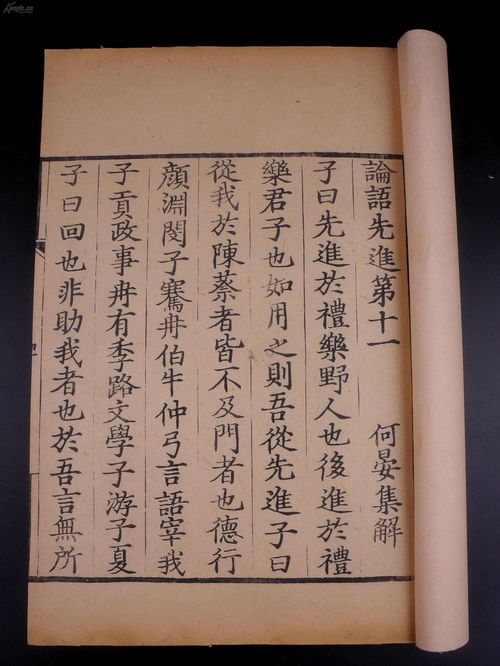 論語先進第十一 何晏集解
子曰先進於禮樂野人也後進於禮
樂君子也如用之則吾從先進子曰
從我於陳蔡者皆不及門者也德行
顏淵閔子騫冉伯牛仲弓言語宰我
子貢政事冉有季路文學子游子夏
子曰回也非助我者也於吾言無所